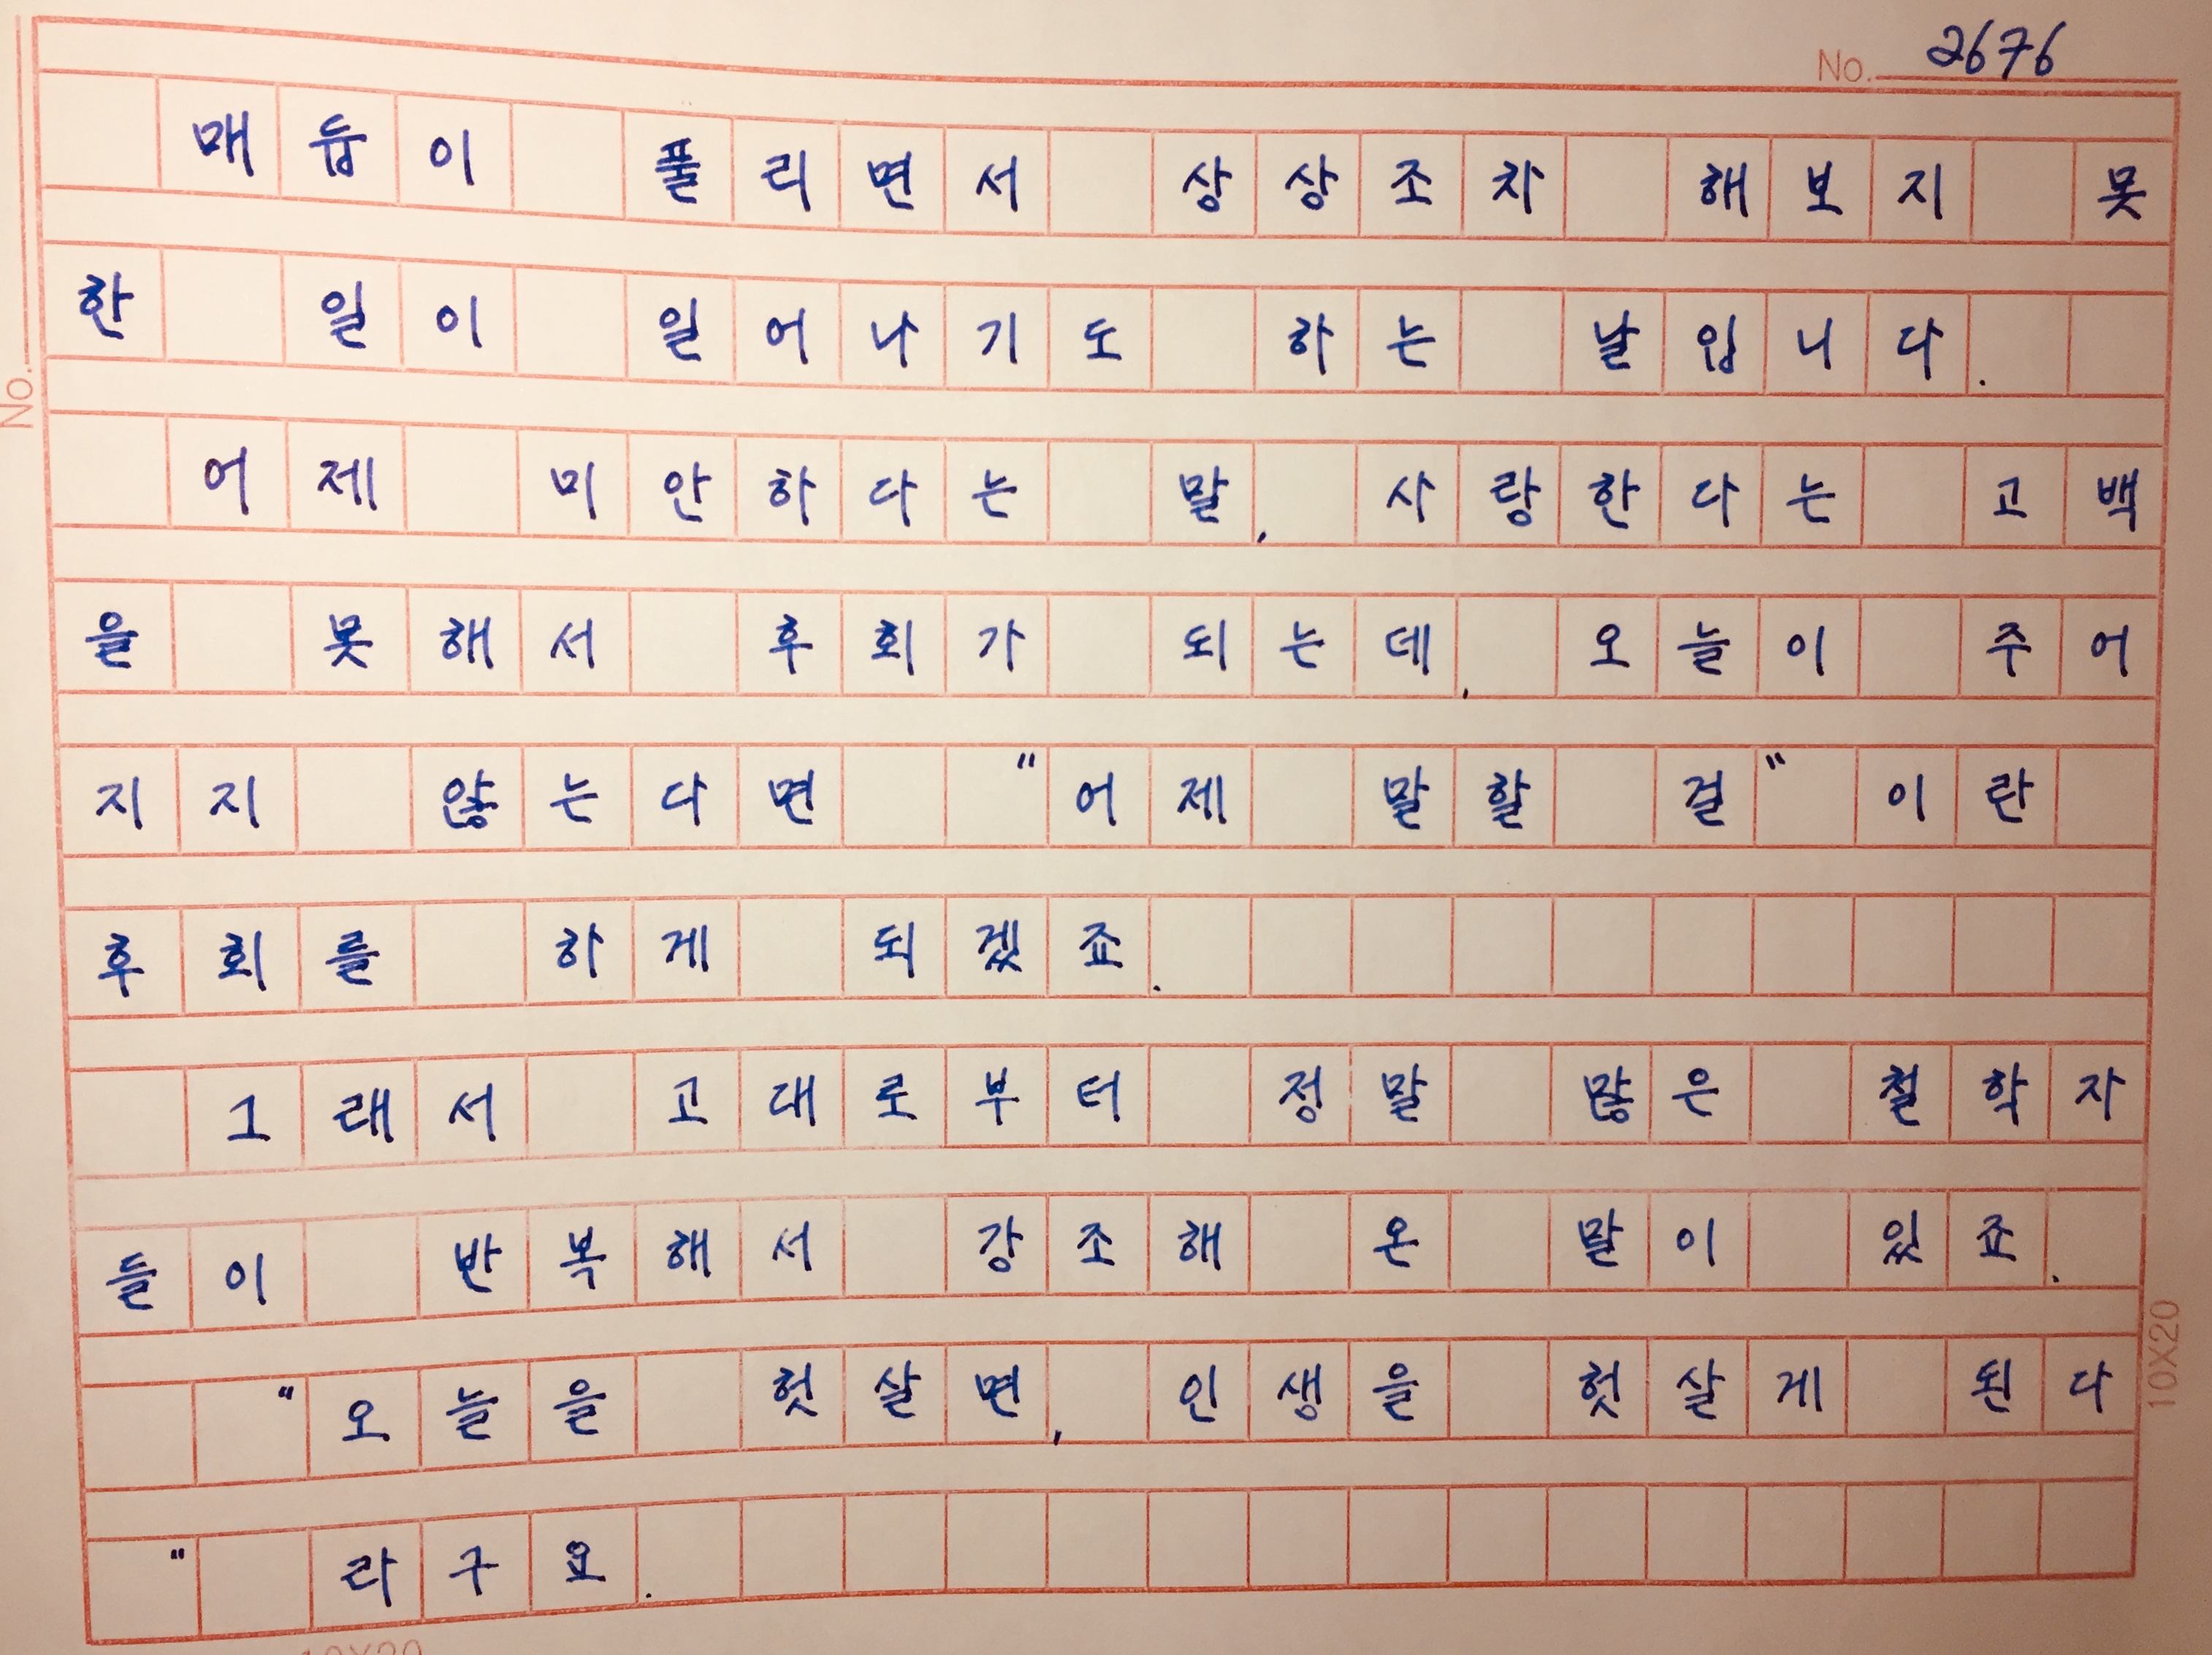 No. 2676
매듭이 풀리면서 상상조차 해보지 못
한 일이 일어나기도 하는 날입니다.
No.
어제 미안하다는 말, 사랑한다는 고백
을 못해서 후회가 되는데, 오늘이 주어
지지 않는다면 "어제 말할 걸"이란
후회를 하게 되겠죠.
그래서 고대로부터 정말 많은 철학자
들이 반복해서 강조해 온 말이 있죠.
"오늘을 헛살면, 인생을 헛살게 된다
" 라구요.
10X20
10X20